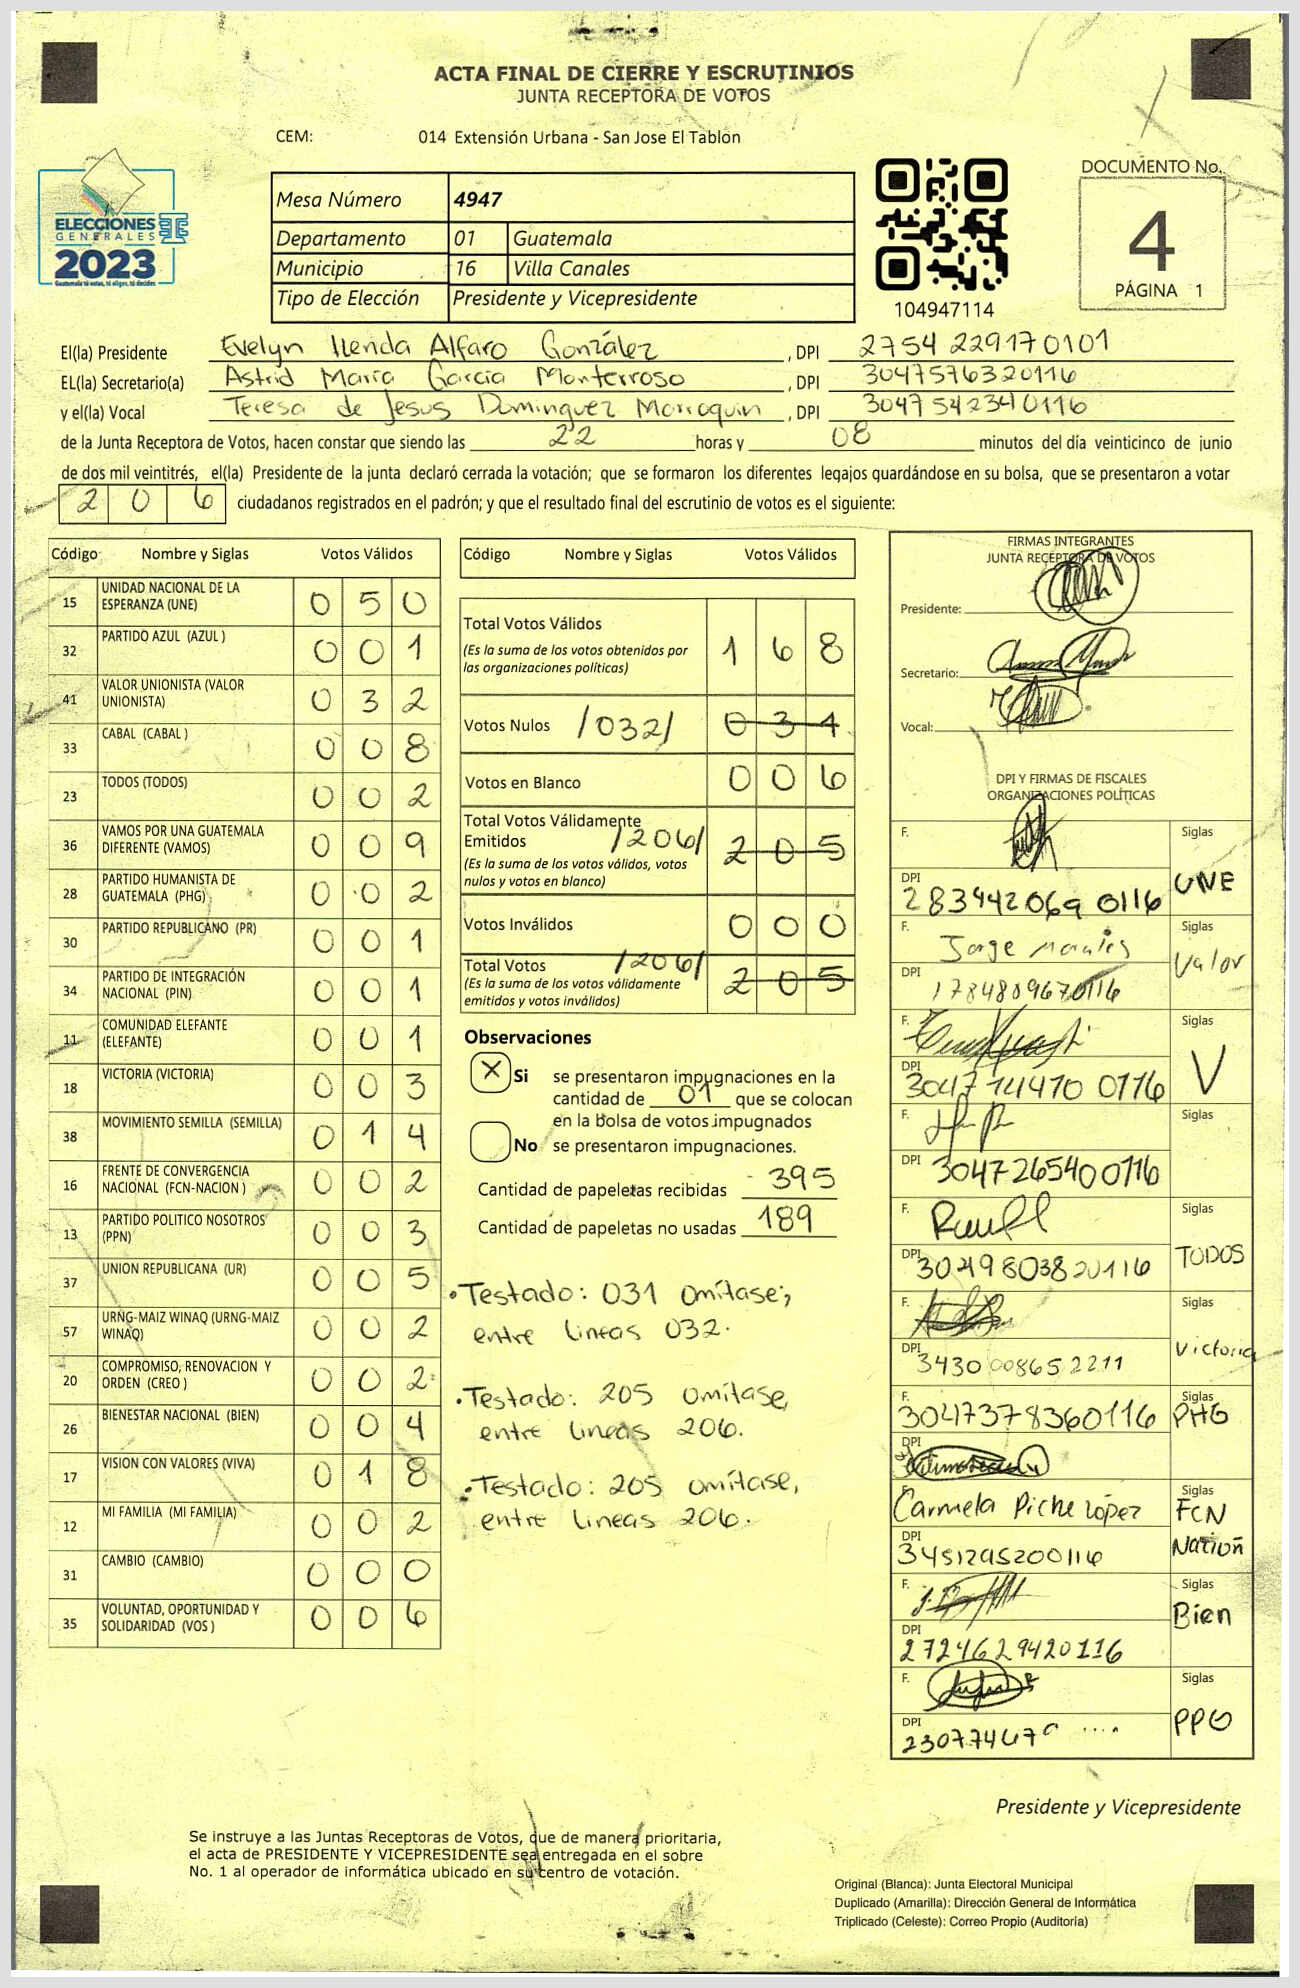 ACTA FINAL DE CIERRE Y ESCRUTINIOS
JUNTA RECEPTORA DE VOTOS
CEM: 014 Extensión Urbana - San Jose El Tablón
ELECCIONES
GENERALES
2023
Guatemala tú votas, tú eliges, tú decides
Mesa Número 4947
Departamento 01 Guatemala
Municipio 16 Villa Canales
Tipo de Elección Presidente y Vicepresidente
104947114
DOCUMENTO No.
4
PÁGINA 1
El(la) Presidente Evelyn Ilenda Alfaro González , DPI 2754 229170101
EL(la) Secretario(a) Astrid María García Monterroso , DPI 3047576320116
y el(la) Vocal Teresa de Jesus Dominguez Marroquin , DPI 3047542340116
de la Junta Receptora de Votos, hacen constar que siendo las 22 horas y 08 minutos del día veinticinco de junio
de dos mil veintitrés, el(la) Presidente de la junta declaró cerrada la votación; que se formaron los diferentes legajos guardándose en su bolsa, que se presentaron a votar
2 0 6 ciudadanos registrados en el padrón; y que el resultado final del escrutinio de votos es el siguiente:
Código Nombre y Siglas Votos Válidos
15 UNIDAD NACIONAL DE LA ESPERANZA (UNE) 0 5 0
32 PARTIDO AZUL (AZUL ) 0 0 1
41 VALOR UNIONISTA (VALOR UNIONISTA) 0 3 2
33 CABAL (CABAL ) 0 0 8
23 TODOS (TODOS) 0 0 2
36 VAMOS POR UNA GUATEMALA DIFERENTE (VAMOS) 0 0 9
28 PARTIDO HUMANISTA DE GUATEMALA (PHG) 0 0 2
30 PARTIDO REPUBLICANO (PR) 0 0 1
34 PARTIDO DE INTEGRACIÓN NACIONAL (PIN) 0 0 1
11 COMUNIDAD ELEFANTE (ELEFANTE) 0 0 1
18 VICTORIA (VICTORIA) 0 0 3
38 MOVIMIENTO SEMILLA (SEMILLA) 0 1 4
16 FRENTE DE CONVERGENCIA NACIONAL (FCN-NACION ) 0 0 2
13 PARTIDO POLITICO NOSOTROS (PPN) 0 0 3
37 UNION REPUBLICANA (UR) 0 0 5
57 URNG-MAIZ WINAQ (URNG-MAIZ WINAQ) 0 0 2
20 COMPROMISO, RENOVACION Y ORDEN (CREO ) 0 0 2
26 BIENESTAR NACIONAL (BIEN) 0 0 4
17 VISION CON VALORES (VIVA) 0 1 8
12 MI FAMILIA (MI FAMILIA) 0 0 2
31 CAMBIO (CAMBIO) 0 0 0
35 VOLUNTAD, OPORTUNIDAD Y SOLIDARIDAD (VOS ) 0 0 6
Código Nombre y Siglas Votos Válidos
Total Votos Válidos 1 6 8
(Es la suma de los votos obtenidos por
las organizaciones políticas)
Votos Nulos /032/
Votos en Blanco 0 0 6
Total Votos Válidamente
Emitidos /206/ 2 0 5
(Es la suma de los votos válidos, votos
nulos y votos en blanco)
Votos Inválidos 0 0 0
Total Votos /206/ 2 0 5
(Es la suma de los votos válidamente
emitidos y votos inválidos)
Observaciones
X Si se presentaron impugnaciones en la
cantidad de 01 que se colocan
en la bolsa de votos impugnados
No se presentaron impugnaciones.
Cantidad de papeletas recibidas 395
Cantidad de papeletas no usadas 189
• Testado: 031 omítase;
entre lineas 032.
• Testado: 205 omítase,
entre lineas 206.
• Testado: 205 omítase,
entre lineas 206.
FIRMAS INTEGRANTES
JUNTA RECEPTORA DE VOTOS
Presidente:
Secretario:
Vocal:
DPI Y FIRMAS DE FISCALES
ORGANIZACIONES POLÍTICAS
F. Siglas UNE
DPI 283442069 0116
F. Jorge Morales Siglas Valor
DPI 1784809670116
F. Siglas V
DPI
F. Siglas
DPI 3047265400116
F. Siglas TODOS
DPI 3049803820116
F. Siglas Victoria
DPI 3430008652211
F. 3047378360116 Siglas PHG
DPI
Carmela Piche López Siglas FCN Nation
DPI 3451295200116
F. Siglas Bien
DPI 2724629420116
F. Siglas PPO
DPI
Presidente y Vicepresidente
Se instruye a las Juntas Receptoras de Votos, que de manera prioritaria,
el acta de PRESIDENTE Y VICEPRESIDENTE sea entregada en el sobre
No. 1 al operador de informática ubicado en su centro de votación.
Original (Blanca): Junta Electoral Municipal
Duplicado (Amarilla): Dirección General de Informática
Triplicado (Celeste): Correo Propio (Auditoría)